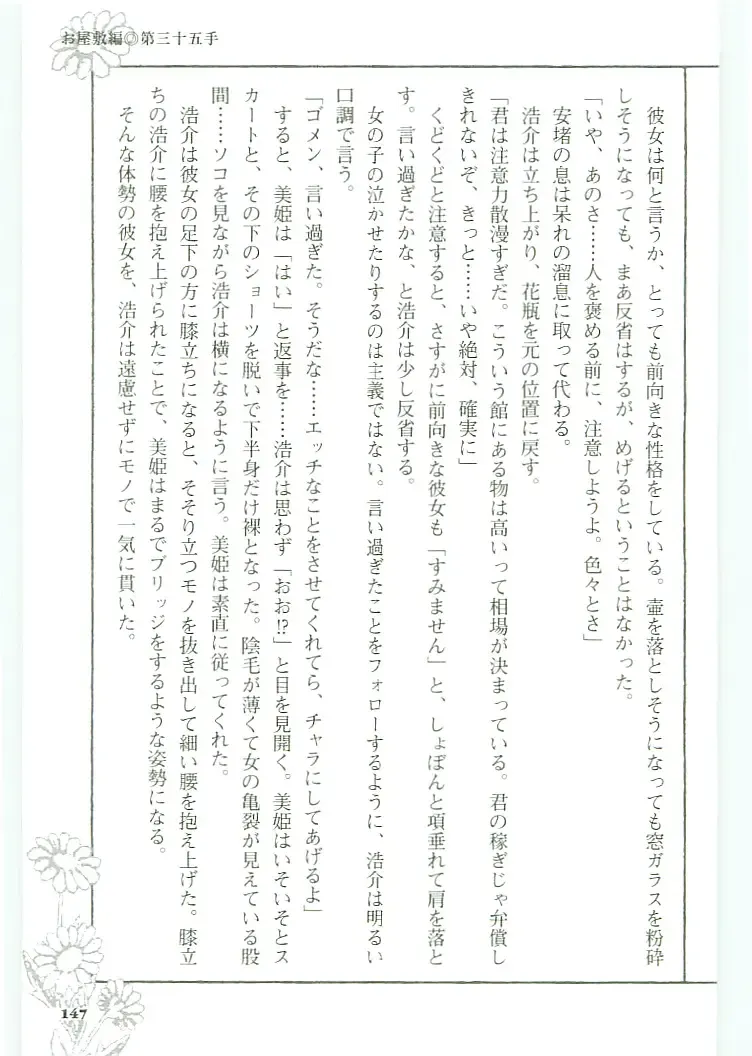 お屋敷編◎第三十五手
彼女は何と言うか、とっても前向きな性格をしている。壷を落としそうになっても窓ガラスを粉砕
しそうになっても、まあ反省はするが、めげるということはなかった。
「いや、あのさ……人を褒める前に、注意しようよ。色々とさ」
安堵の息は呆れの溜息に取って代わる。
浩介は立ち上がり、花瓶を元の位置に戻す。
「君は注意力散漫すぎだ。こういう館にある物は高いって相場が決まっている。君の稼ぎじゃ弁償し
きれないぞ、きっと……いや絶対、確実に」
くどくどと注意すると、さすがに前向きな彼女も「すみません」と、しょぼんと項垂れて肩を落と
す。言い過ぎたかな、と浩介は少し反省する。
女の子の泣かせたりするのは主義ではない。言い過ぎたことをフォローするように、浩介は明るい
口調で言う。
「ゴメン、言い過ぎた。そうだな……エッチなことをさせてくれてら、チャラにしてあげるよ」
すると、美姫は「はい」と返事を……浩介は思わず「おお!?」と目を見開く。美姫はいそいそとス
カートと、その下のショーツを脱いで下半身だけ裸となった。陰毛が薄くて女の亀裂が見えている股
間……ソコを見ながら浩介は横になるように言う。美姫は素直に従ってくれた。
浩介は彼女の足下の方に膝立ちになると、そそり立つモノを抜き出して細い腰を抱え上げた。膝立
ちの浩介に腰を抱え上げられたことで、美姫はまるでブリッジをするような姿勢になる。
そんな体勢の彼女を、浩介は遠慮せずにモノで一気に貫いた。
147